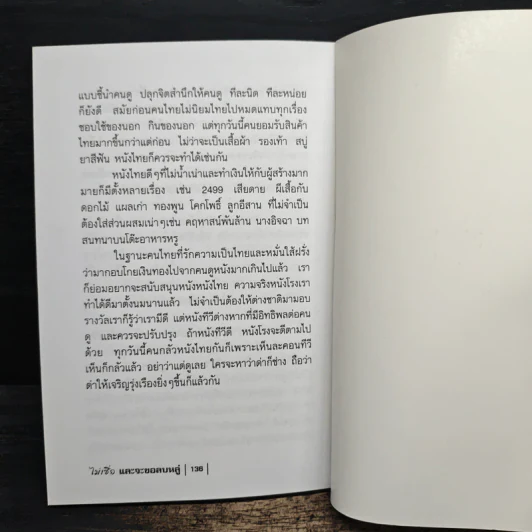 แบบชี้นำคนดู ปลุกจิตสำนึกให้คนดู ทีละนิด ทีละหน่อย
ก็ยังดี สมัยก่อนคนไทยไม่นิยมไทยไปหมดแทบทุกเรื่อง
ชอบใช้ของนอก กินของนอก แต่ทุกวันนี้คนยอมรับสินค้า
ไทยมากขึ้นกว่าแต่ก่อน ไม่ว่าจะเป็นเสื้อผ้า รองเท้า สบู่
ยาสีฟัน หนังไทยก็ควรจะทำได้เช่นกัน
หนังไทยดีๆที่ไม่น้ำเน่าและทำเงินให้กับผู้สร้างมาก
มายก็มีตั้งหลายเรื่อง เช่น 2499 เสียดาย ผีเสื้อกับ
ดอกไม้ แผลเก่า ทองพูน โคกโพธิ์ ลูกอีสาน ที่ไม่จำเป็น
ต้องใส่ส่วนผสมเน่าๆเช่น คฤหาสน์พันล้าน นางอิจฉา บท
สนทนาบนโต๊ะอาหารหรู
ในฐานะคนไทยที่รักความเป็นไทยและหมั่นไส้ฝรั่ง
ว่ามากอบโกยเงินทองไปจากคนดูหนังมากเกินไปแล้ว เรา
ก็ย่อมอยากจะสนับสนุนหนังหนังไทย ความจริงหนังโรงเรา
ทำได้ดีมาตั้งนมนานแล้ว ไม่จำเป็นต้องให้ต่างชาติมามอบ
รางวัลเราก็รู้ว่าเรามีดี แต่หนังทีวีต่างหากที่มีอิทธิพลต่อคน
ดู และควรจะปรับปรุง ถ้าหนังทีวีดี หนังโรงจะดีตามไป
ด้วย ทุกวันนี้คนกลัวหนังไทยกันก็เพราะเห็นละคอนทีวี
เห็นก็กลัวแล้ว อย่าว่าแต่ดูเลย ใครจะหาว่าด่าก็ช่าง ถือว่า
ด่าให้เจริญรุ่งเรืองยิ่งๆขึ้นก็แล้วกัน
ไม่เชื่อ และจะยอลบหลู่ | 136 |